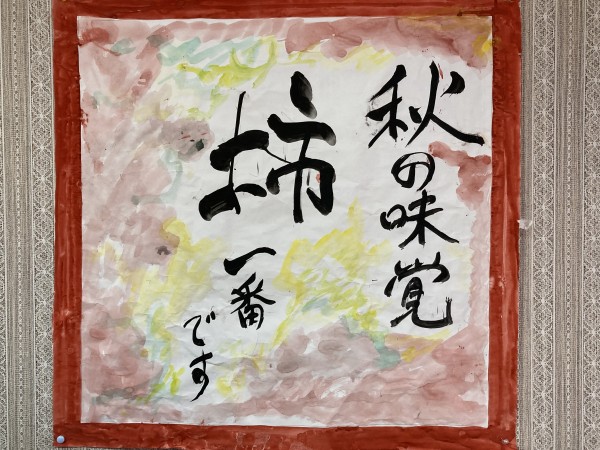 秋の味覚
柿
一番
です